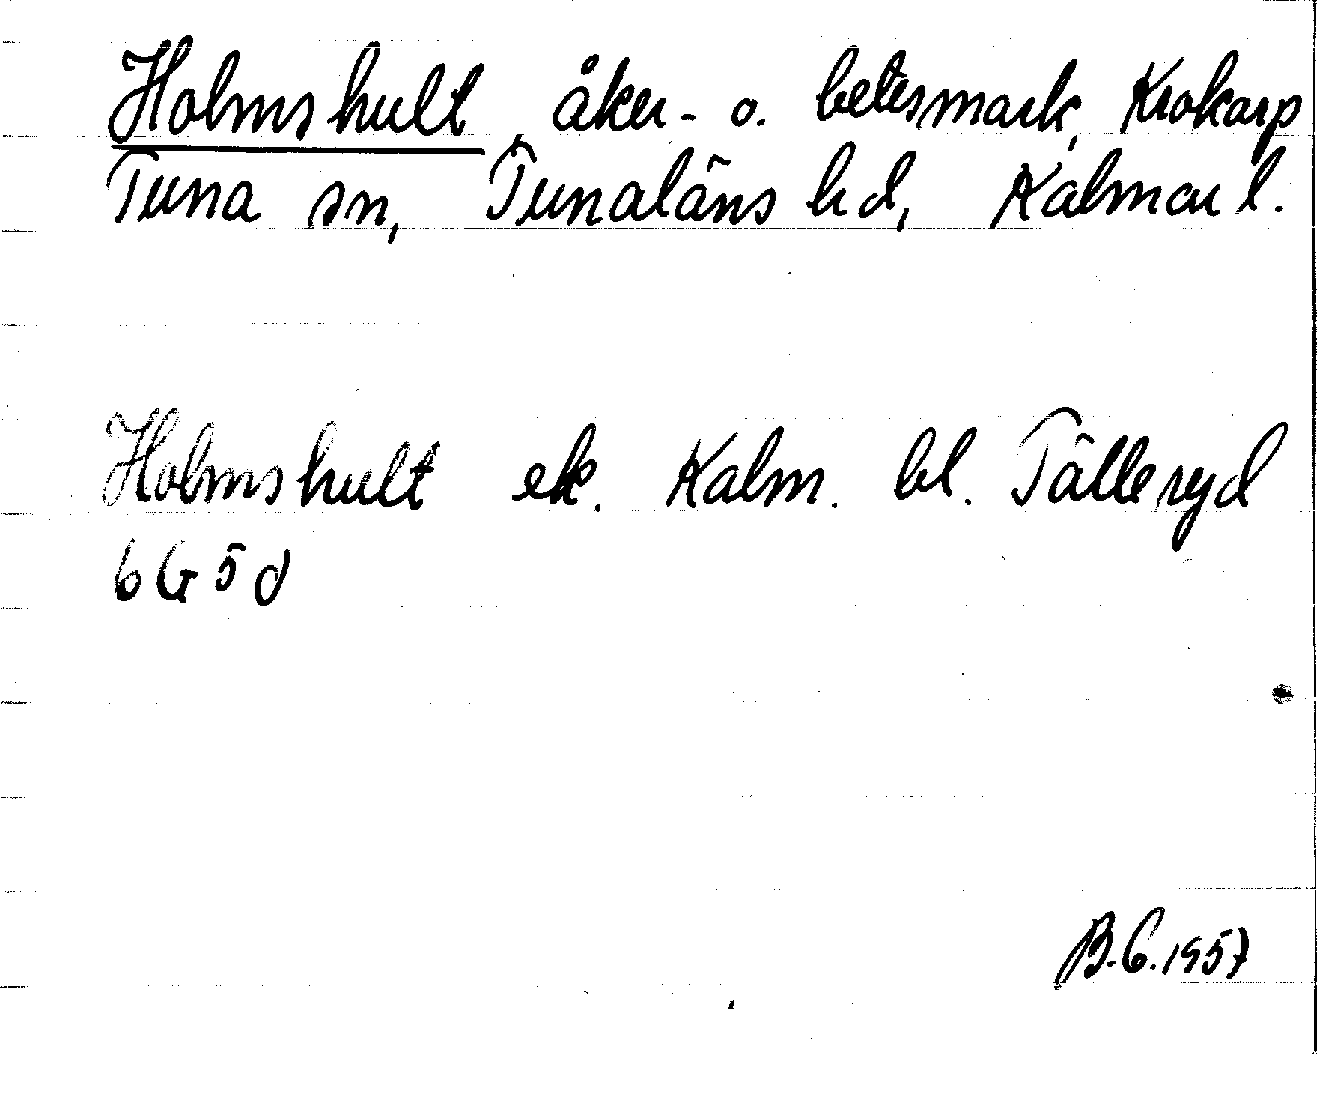 Holmshult, åker- o. betesmark, Krokarp
Tuna sn, Tunaläns hd, Kalmar l.
Holmshult ek. Kalm. bl. Tälleryd
6G5d
B.G.1957